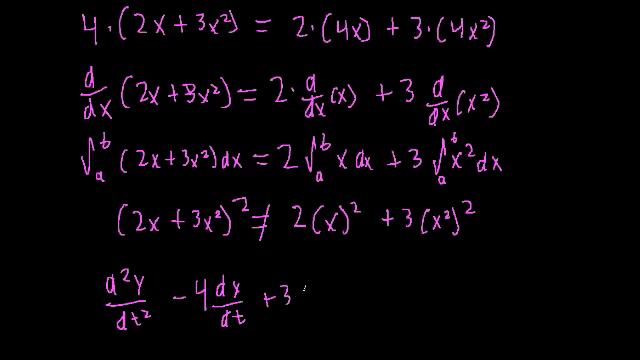 4·(2x + 3x²) = 2·(4x) + 3·(4x²)
d/dx (2x + 3x²) = 2·d/dx (x) + 3 d/dx (x²)
∫ₐᵇ (2x + 3x²) dx = 2 ∫ₐᵇ x dx + 3 ∫ₐᵇ x² dx
(2x + 3x²)² ≠ 2(x)² + 3(x²)²
d²y/dt² - 4 dy/dt + 3